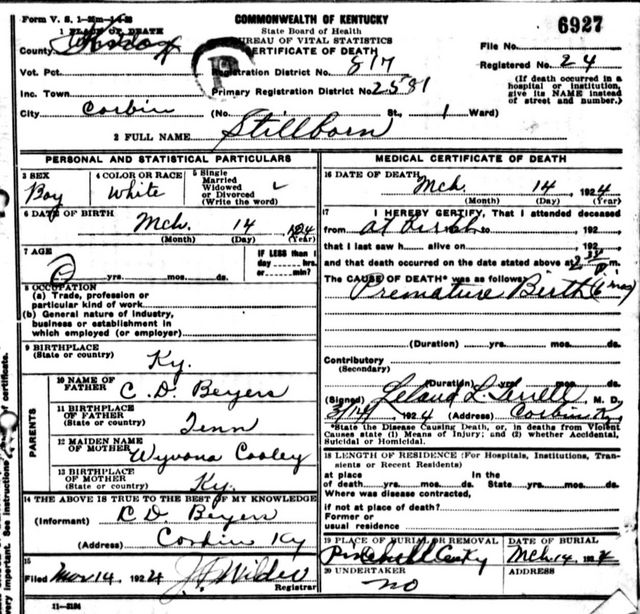 Form V. S. 1—
COMMONWEALTH OF KENTUCKY
6927
1 PLACE OF DEATH
State Board of Health
BUREAU OF VITAL STATISTICS
File No.
County
CERTIFICATE OF DEATH
Registered No. 24
Vot. Pct.
Registration District No. 817
(If death occurred in a hospital or institution, give its NAME instead of street and number.)
Inc. Town
Primary Registration District No. 2581
City Corbin (No. St., 1 Ward)
2 FULL NAME Stillborn
PERSONAL AND STATISTICAL PARTICULARS
3 SEX Boy
4 COLOR OR RACE White
5 Single Married Widowed or Divorced (Write the word)
6 DATE OF BIRTH Mch. 14 1924
(Month) (Day) (Year)
7 AGE
0 yrs. mos. ds.
IF LESS than 1 day hrs. or min?
8 OCCUPATION
(a) Trade, profession or particular kind of work
(b) General nature of industry, business or establishment in which employed (or employer)
9 BIRTHPLACE (State or country) Ky.
PARENTS
10 NAME OF FATHER C. D. Beyers
11 BIRTHPLACE OF FATHER (State or country) Tenn
12 MAIDEN NAME OF MOTHER Wyvona Cooley
13 BIRTHPLACE OF MOTHER (State or country) Ky.
14 THE ABOVE IS TRUE TO THE BEST OF MY KNOWLEDGE
(Informant) C D Beyers
(Address) Corbin Ky
15
Filed Mar 14 1924 Wilder
Registrar
11—3184
MEDICAL CERTIFICATE OF DEATH
16 DATE OF DEATH Mch. 14, 1924
(Month) (Day) (Year)
17 I HEREBY CERTIFY, That I attended deceased
from at birth to , 192
that I last saw h alive on , 192
and that death occurred on the date stated above at m.
The CAUSE OF DEATH* was as follows:
Premature Birth (6 mos)
(Duration) yrs. mos. ds.
Contributory
(Secondary)
(Duration) yrs. mos. ds.
(Signed) Leland L. Terrell M. D.
3/14, 1924 (Address) Corbin, Ky.
*State the Disease Causing Death, or, in deaths from Violent
Causes state (1) Means of Injury; and (2) whether Accidental,
Suicidal or Homicidal.
18 LENGTH OF RESIDENCE (For Hospitals, Institutions, Transients or Recent Residents)
at place of death yrs. mos. ds. In the State yrs. mos. ds.
Where was disease contracted,
if not at place of death?
Former or
usual residence
19 PLACE OF BURIAL OR REMOVAL
DATE OF BURIAL
Mch. 14, 1924
20 UNDERTAKER
no
ADDRESS